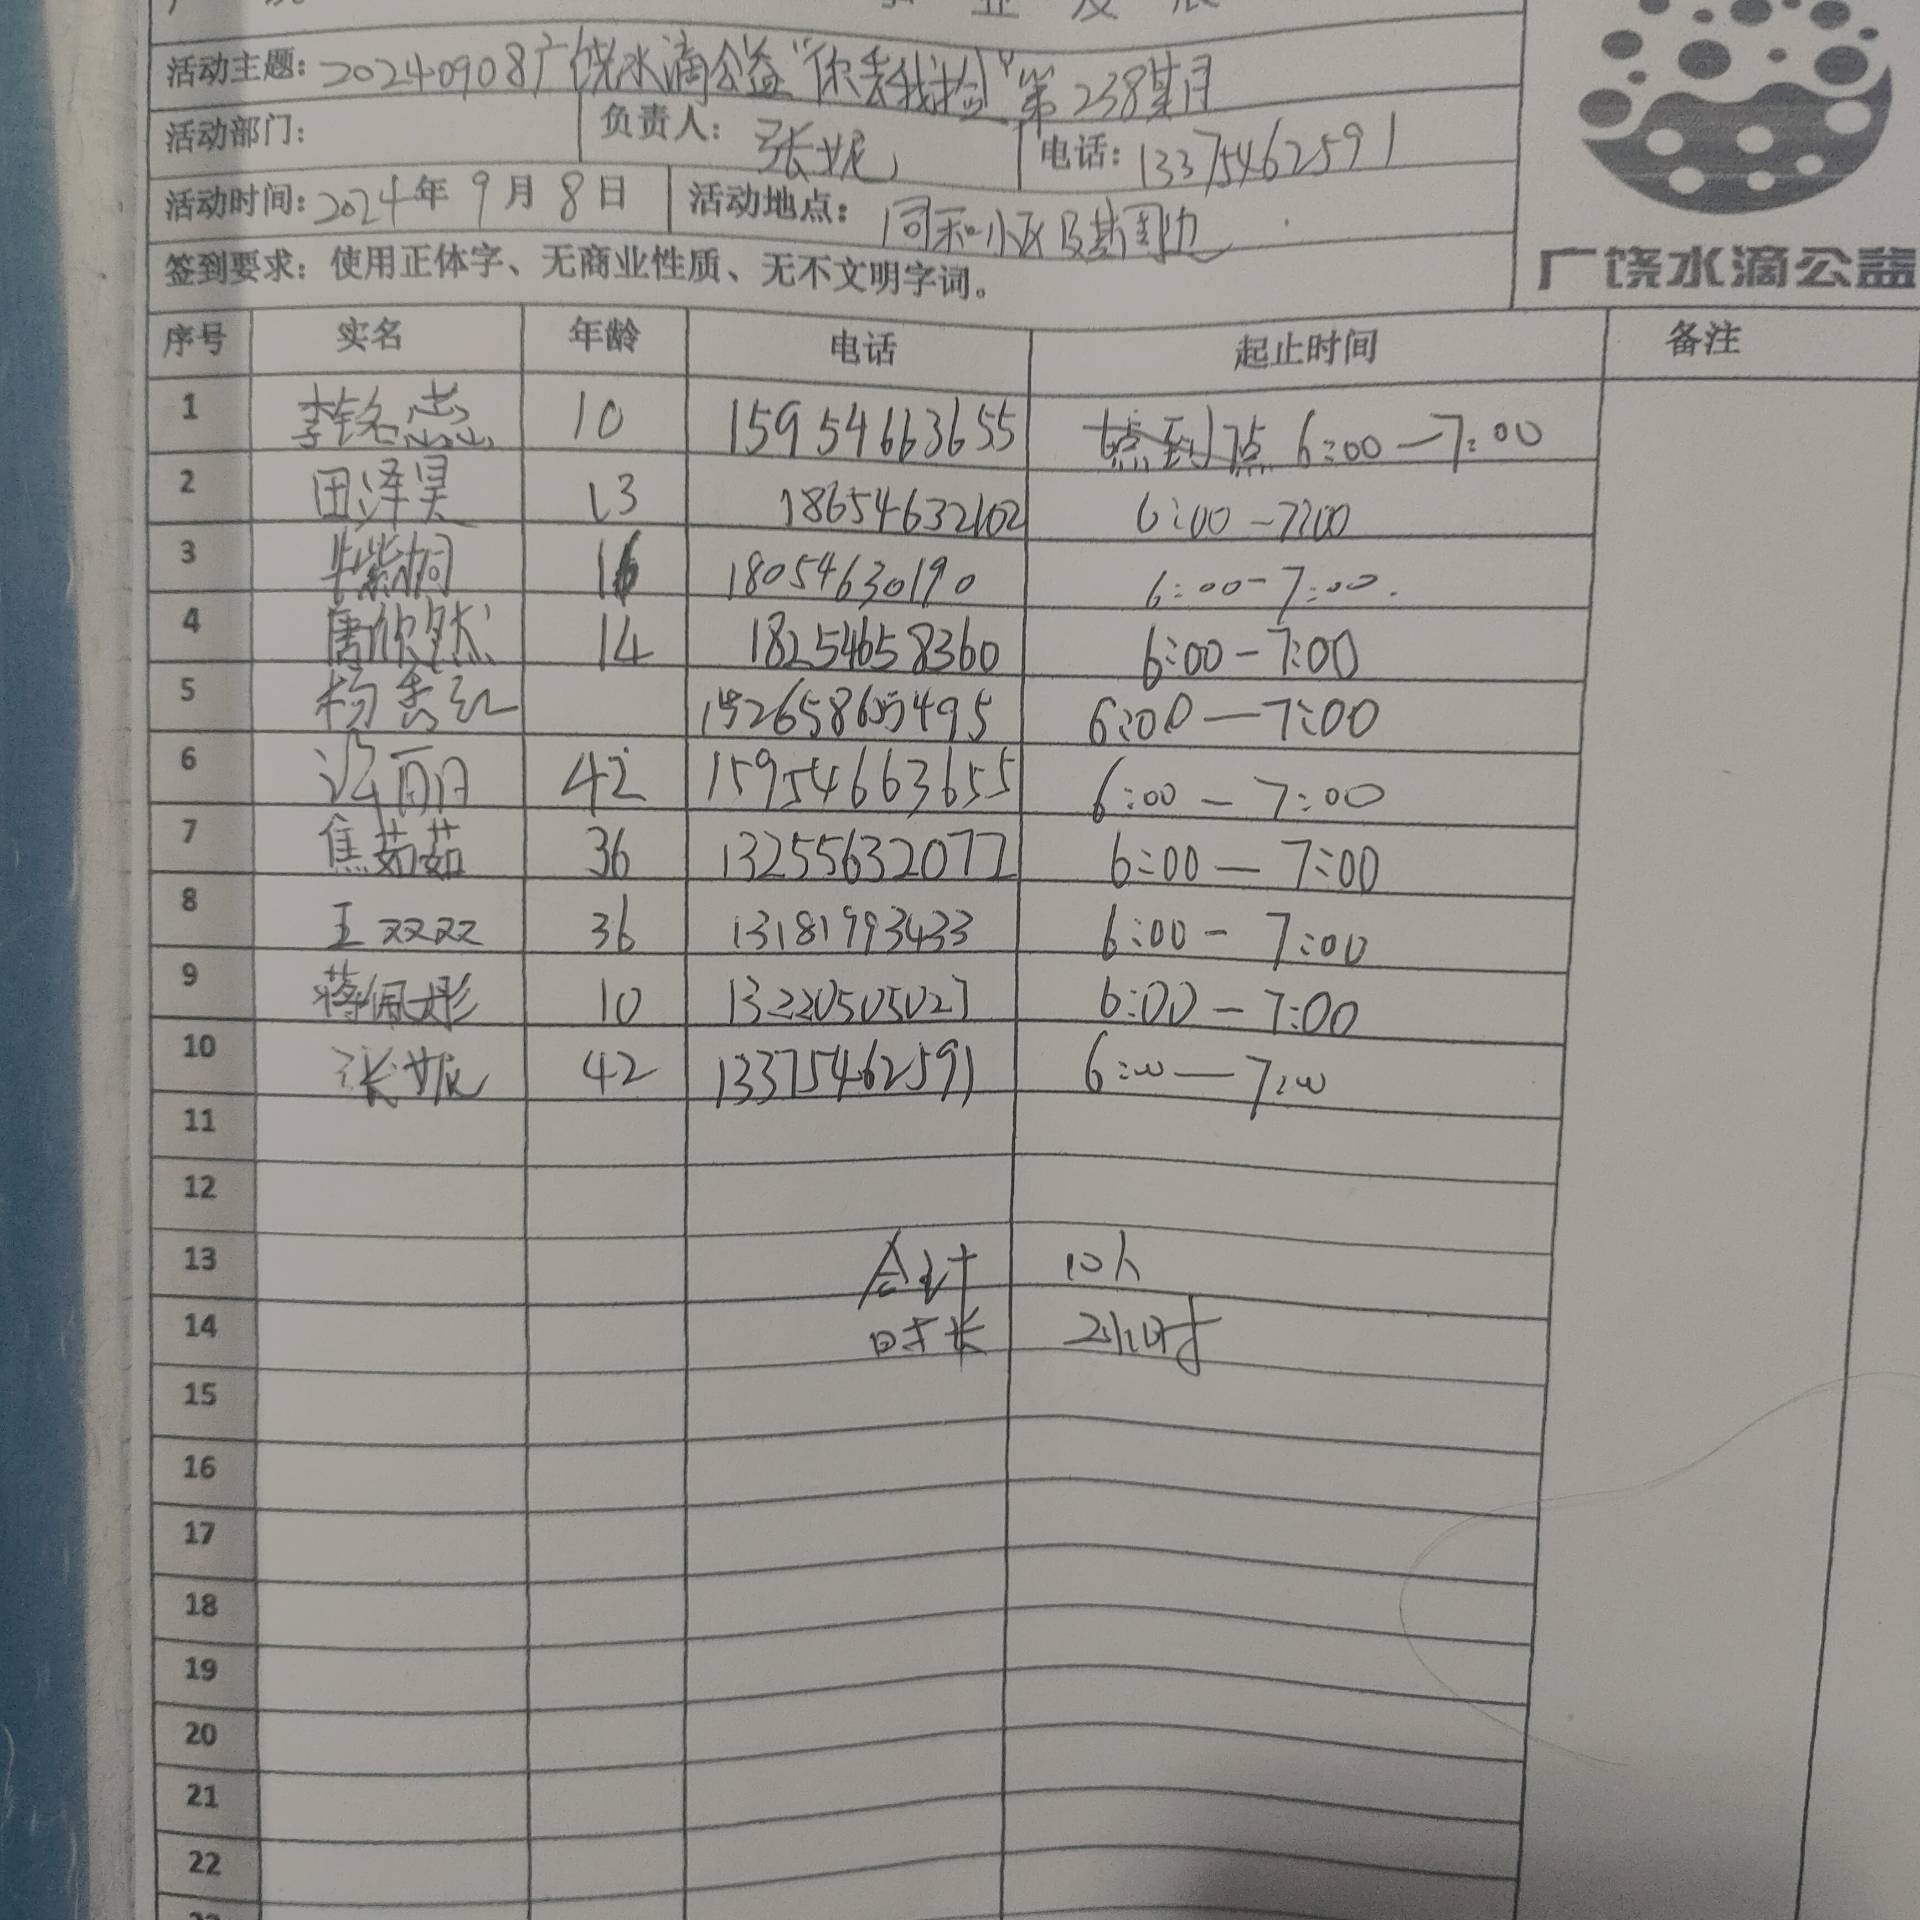 业发展
活动主题：20240908广饶水滴公益"你丢我捡"第238期
活动部门： 负责人：张妮 电话：13375462591
活动时间：2024年9月8日 活动地点：同和小区及其周边
签到要求：使用正体字、无商业性质、无不文明字词。
广饶水滴公益
序号 实名 年龄 电话 起止时间 备注
1 李铭 10 15954663655 6:00—7:00
2 田泽昊 13 18654632102 6:00-7:00
3 16 18054630190 6:00-7:00.
4 唐欣然 14 18254658360 6:00-7:00
5 杨秀红 6:00—7:00
6 42 15954663655 6:00-7:00
7 焦茹茹 36 13255632077 6:00—7:00
8 王双双 36 13181993433 6:00-7:00
9 蒋佩彤 10 13220505027 6:00-7:00
10 张妮 42 13375462591 6:00—7:00
11
12
13 合计 10人
14 时长 2小时
15
16
17
18
19
20
21
22